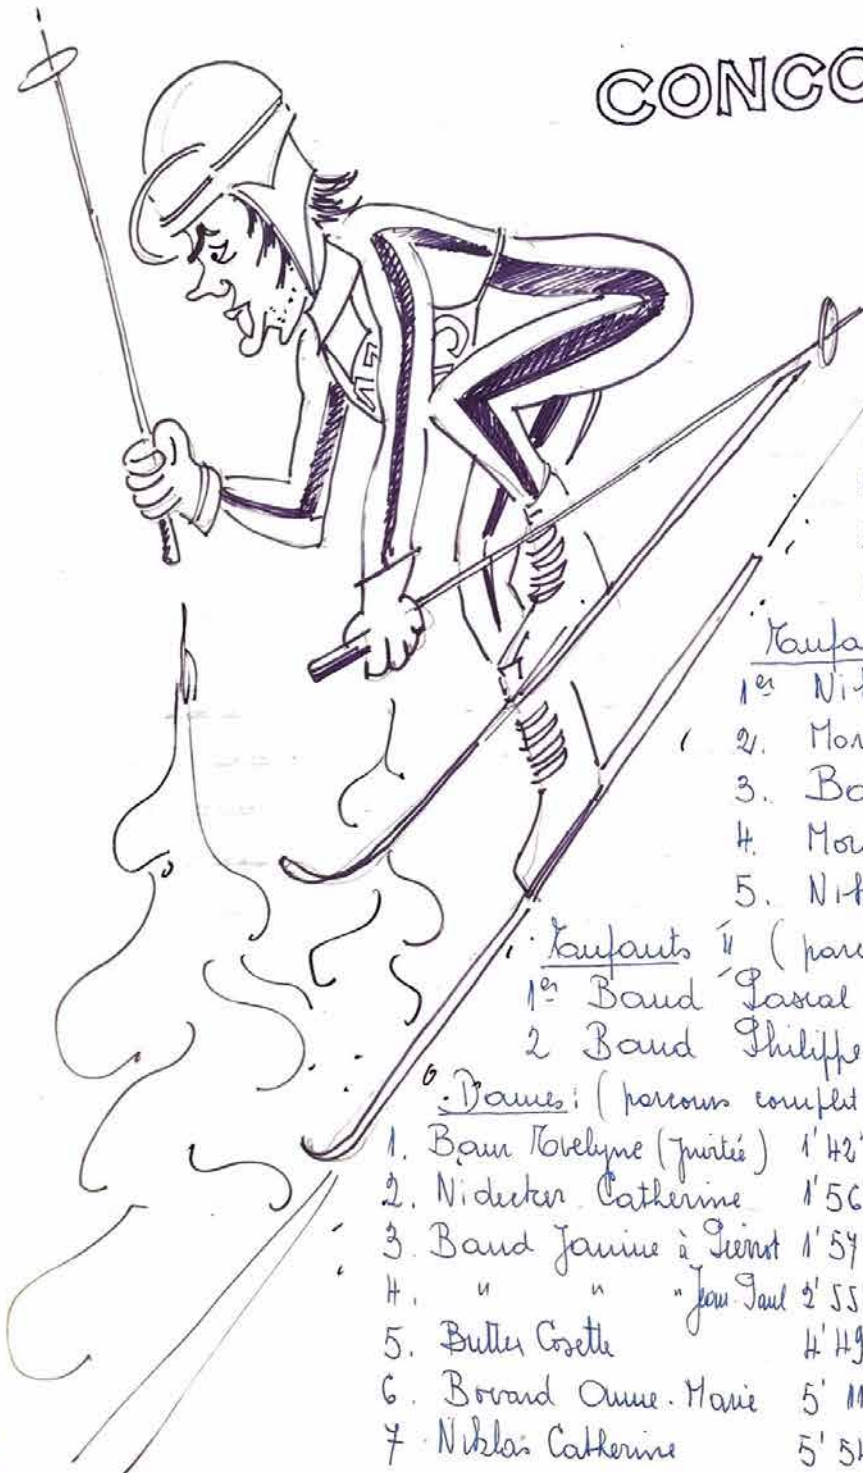 CONCO
Enfa
1er Ni
2. Mor
3. Ba
4. Mor
5. Nik
Enfants II (parc
1er Baud Pascal
2 Baud Philippe
Dames: (parcours complet
1. Baur Evelyne (invitée) 1'42'
2. Nidecker Catherine 1'56
3. Baud Janine à Pierrot 1'57
4. " " " Jean-Paul 2'55
5. Butter Cosette 4'49
6. Bovard Anne-Marie 5'11
7 Niklas Catherine 5'54